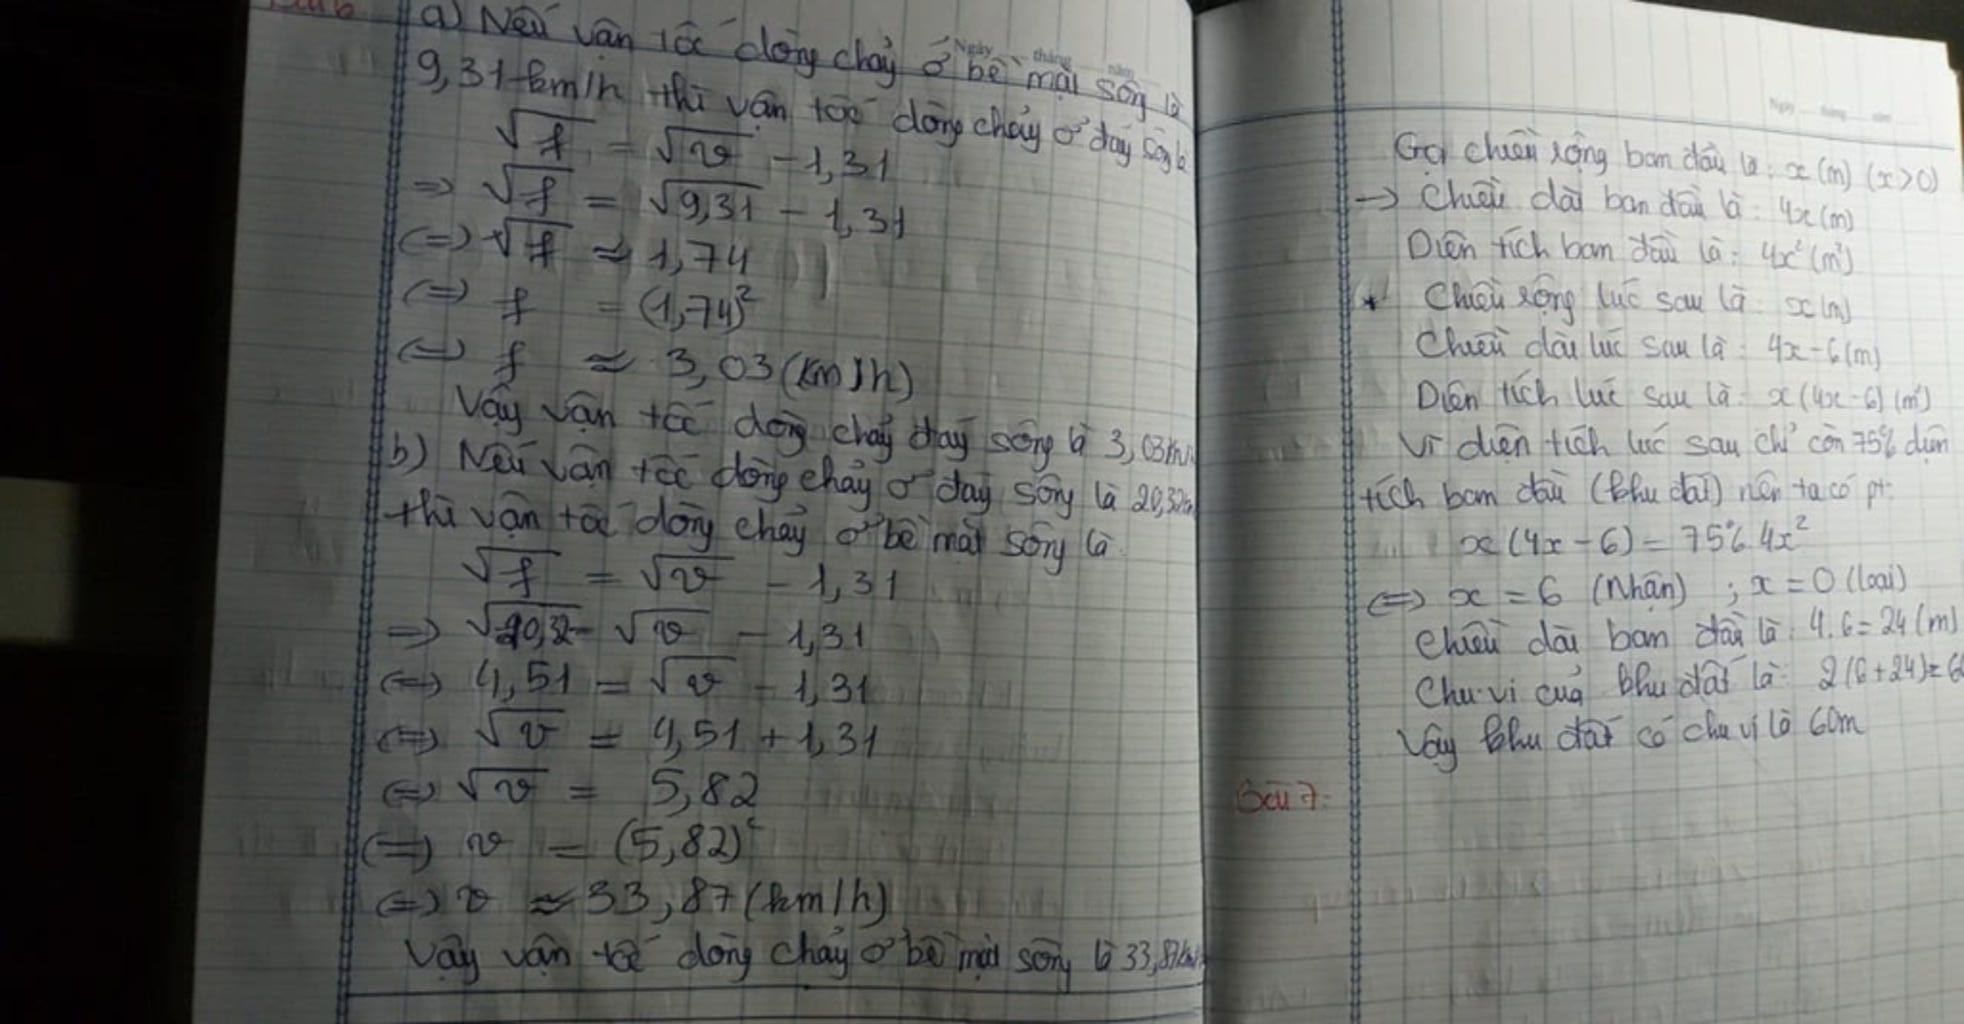 a) Nếu vận tốc dòng chảy ở bề mặt sông là
Ngày tháng năm
9,31 km/h thì vận tốc dòng chảy ở đáy sông là
√f = √v - 1,31
=> √f = √9,31 - 1,31
<=> √f ≈ 1,74
<=> f = (1,74)²
<=> f ≈ 3,03 (km/h)
Vậy vận tốc dòng chảy đáy sông là 3,03km/
b) Nếu vận tốc dòng chảy ở đáy sông là 20,32
thì vận tốc dòng chảy ở bề mặt sông là
√f = √v - 1,31
=> √20,32 = √v - 1,31
<=> 4,51 = √v - 1,31
<=> √v = 4,51 + 1,31
<=> √v = 5,82
<=> v = (5,82)²
<=> v ≈ 33,87 (km/h)
Vậy vận tốc dòng chảy ở bề mặt sông là 33,87km/
Ngày tháng năm
Gọi chiều rộng ban đầu là: x (m) (x>0)
-> Chiều dài ban đầu là: 4x (m)
Diện tích ban đầu là: 4x² (m²)
Chiều rộng lúc sau là: x (m)
Chiều dài lúc sau là: 4x-6 (m)
Diện tích lúc sau là: x (4x-6) (m²)
Vì diện tích lúc sau chỉ còn 75% diện
tích ban đầu (khu đất) nên ta có pt:
x (4x - 6) = 75% 4x²
<=> x = 6 (Nhận) ; x = 0 (loại)
Chiều dài ban đầu là: 4.6 = 24 (m)
Chu vi của khu đất là: 2(6+24)=6
Vậy khu đất có chu vi là 60m
Bài 7: